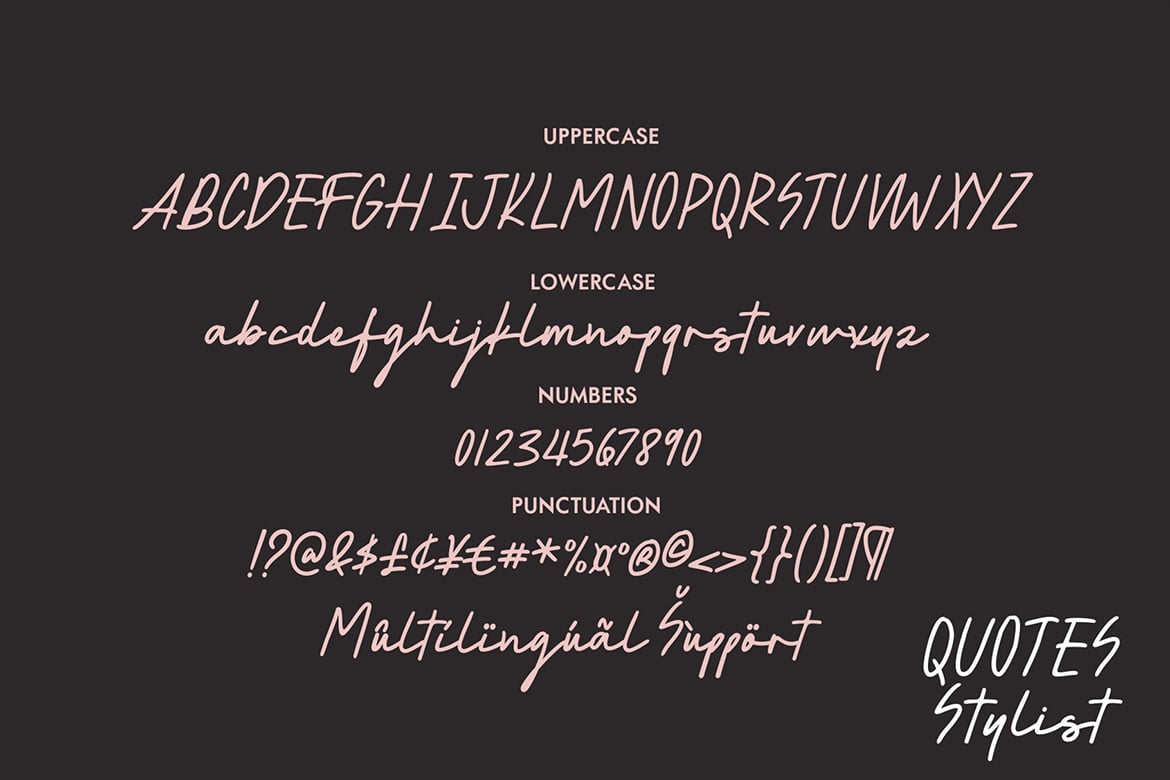 UPPERCASE
ABCDEFGHIJKLMNOPQRSTUVWXYZ
LOWERCASE
abcdefghijklmnopqrstuvwxyz
NUMBERS
01234567890
PUNCTUATION
!?@&$£¢¥€#*%¤°®©<>{}()[]¶
Mûltílïngúãl Šùppört
QUOTES
Stylist